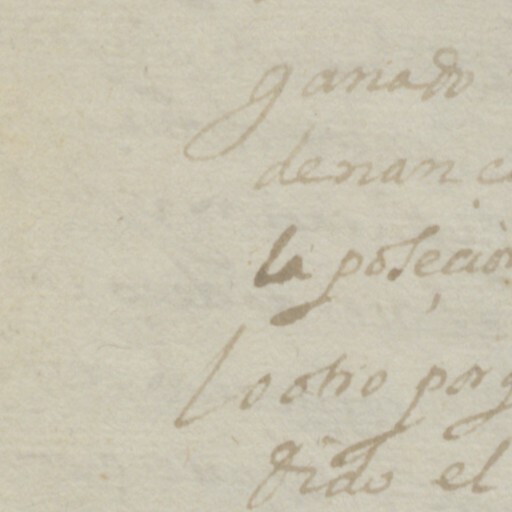 ganado
denan c
la posecion
Lo otro porq
dido el